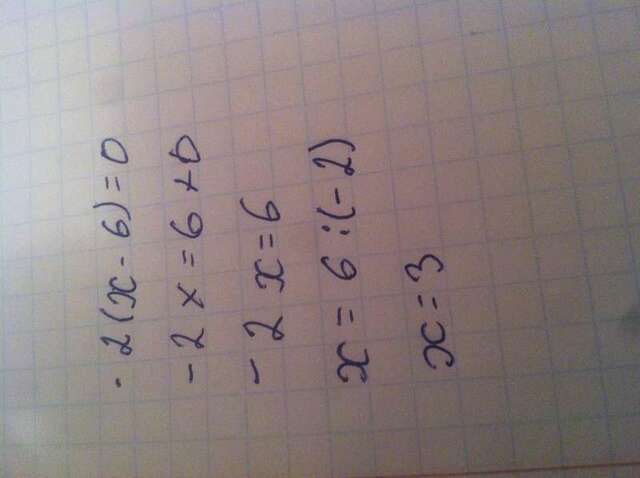 - 2(x - 6) = 0
- 2 x = 6 + 0
- 2 x = 6
x = 6 : (- 2)
x = 3